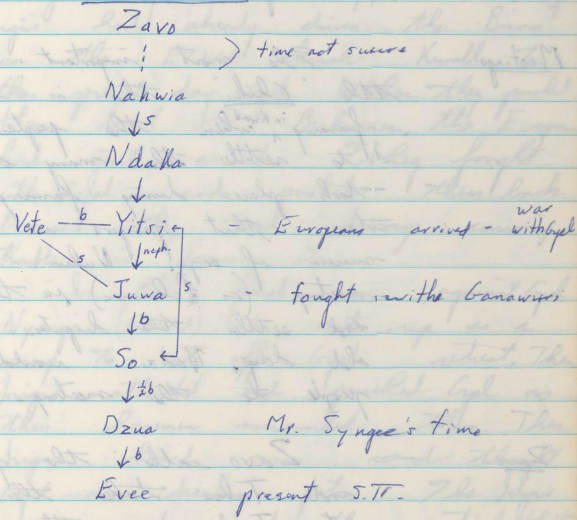 Zavo
time not sucure
Nahwia
s
Ndalla
Vete b Yitsi - Europeans arrived - war with Gyel
neph.
s s
Juwa - fought withe Ganawuri
b
So
½b
Dzua Mr. Syngee's time
b
Evee present S.T.